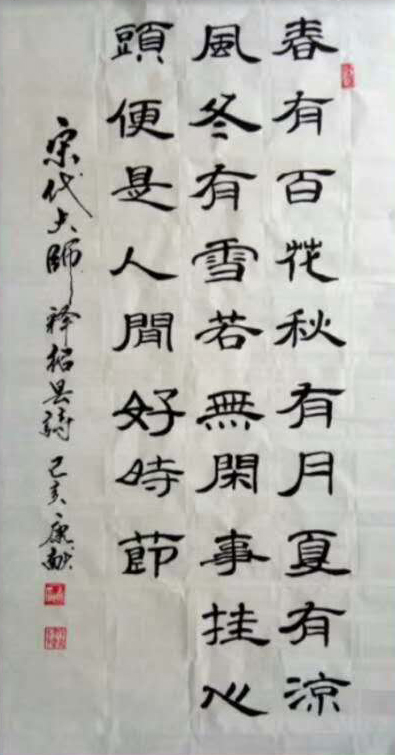 春有百花秋有月夏有涼
風冬有雪若無閑事挂心
頭便是人間好時節
宋代大師釋紹曇詩 己亥 康献